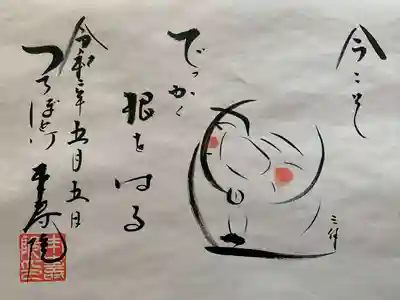 今こそ
でっかく
根をはる
令和二年五月五日
つちぼとけ